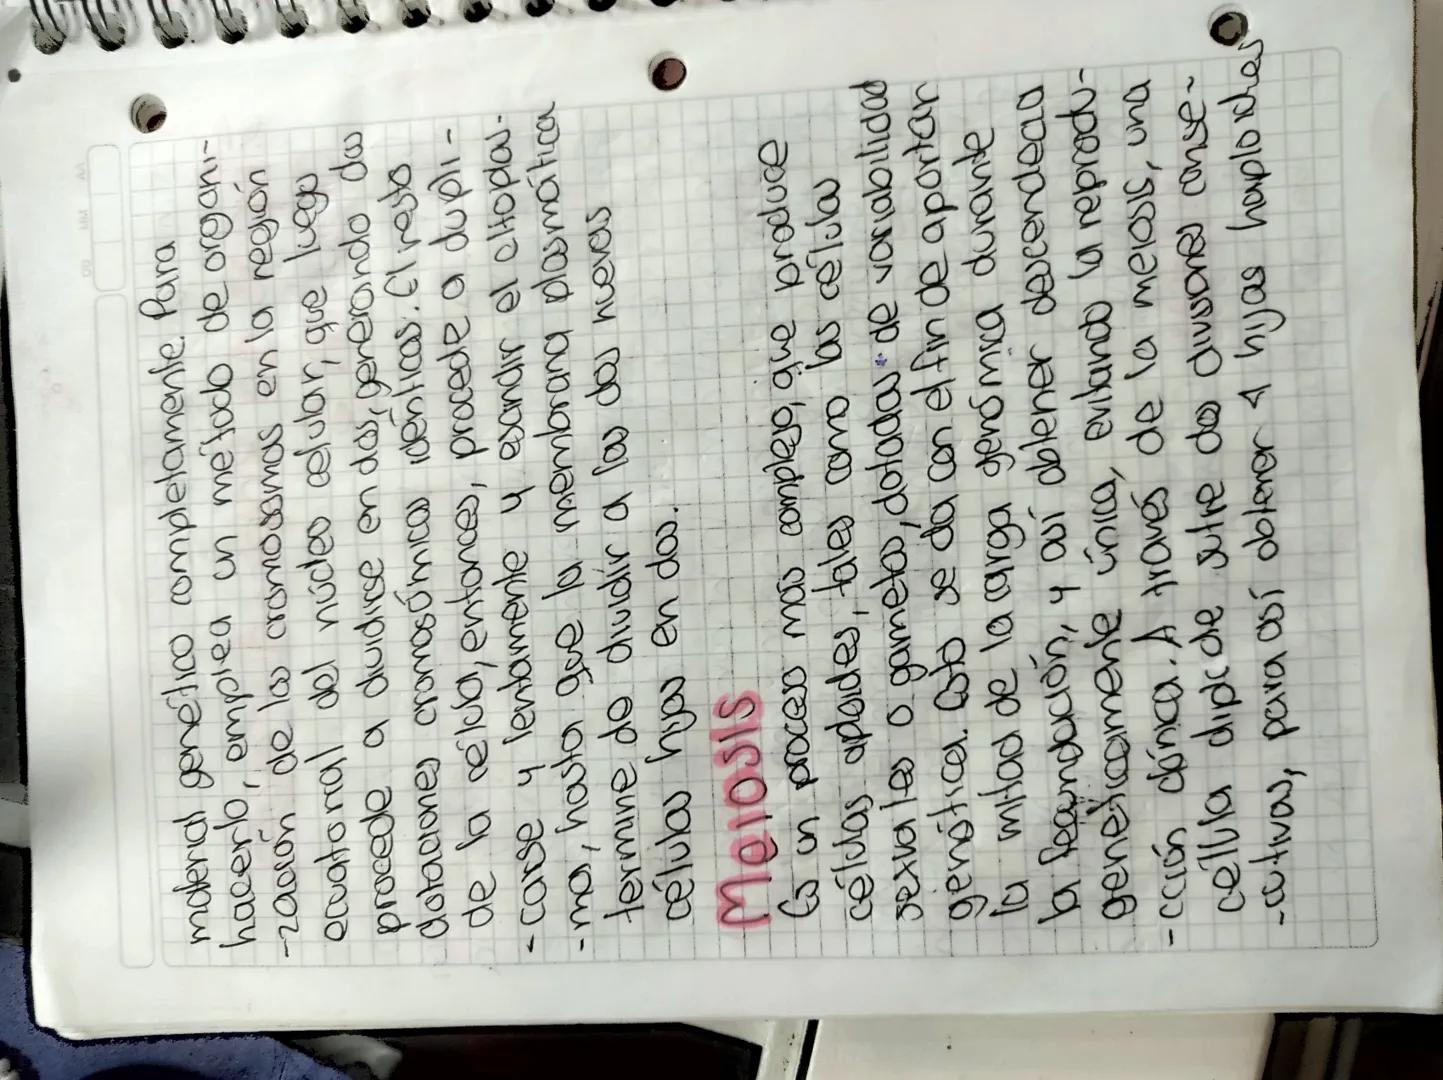 material genético completamente. Para
hacerlo, emplea un método de organi-
-zación de los cromosomas en la región
ecuatorial del núcleo celular, que luego
procede a dividirse en dos, generando dos
dotaciones cromosómicas idénticas. El resto
de la célula, entonces, procede a dupli-
-carse y lentamente y escindir el citoplas-
-ma, hasta que la membrana plasmática
termine de dividir a las dos nuevas
células hijas en dos.
Meiosis
Es un proceso más complejo, que produce
células aploides, tales como las células
sexuales o gametos, dotadas de variabilidad
genética. Esto se da con el fin de aportar
la mitad de la carga genómica durante
la fecundación, y así obtener descendecia
genéticamente única, evitando la reprodu-
-cción clónica. A través de la meiosis, una
célula diploide sufre dos divisiones conse-
-cutivas, para así obtener 4 hijas haploides